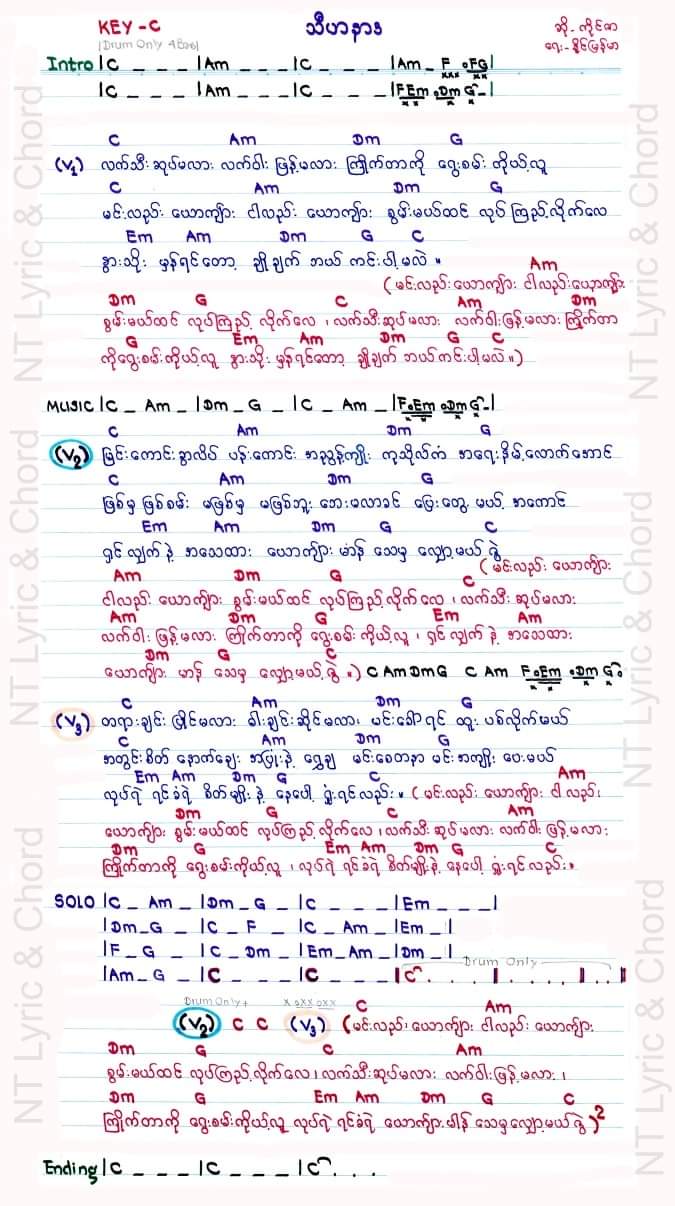 KEY - C သီဟနာဒ ဆို - ကိုင်ဇာ
|Drum Only 4 Bars| ရေး - နိုင်မြန်မာ
Intro |C _ _ _ |Am _ _ _ |C _ _ _ |Am _ F •FG|
|C _ _ _ |Am _ _ _ |C _ _ _ |FEm •Dm G -|
C Am Dm G
(V1) လက်သီးဆုပ်မလား လက်ဝါးဖြန့်မလား ကြိုက်တာကို ရွေးစမ်း ကိုယ့်လူ
C Am Dm G
မင်းလည်း ယောကျ်ား ငါလည်း ယောကျ်ား စွမ်းမယ်ထင် လုပ်ကြည့်လိုက်လေ
Em Am Dm G C
သွားသိုး မှန်ရင်တော့ ချိုချက် ဘယ် ကင်းပါ့မလဲ ။
Am
( မင်းလည်းယောကျ်ား ငါလည်းယောကျ်ား
Dm G C Am Dm
စွမ်းမယ်ထင် လုပ်ကြည့် လိုက်လေ ၊ လက်သီးဆုပ်မလား လက်ဝါးဖြန့်မလား ကြိုက်တာ
G Em Am Dm G C
ကိုရွေးစမ်းကိုယ့်လူ သွားသိုး မှန်ရင်တော့ ချိုချက် ဘယ်ကင်းပါ့မလဲ ။)
MUSIC |C _ Am _ |Dm _ G _ |C _ Am _ |F•Em •Dm G -|
C Am Dm G
(V2) မြင်းကောင်းခွာလိပ် ပန်းကောင်း အညွန့်ကျိုး ကုသိုလ်ကံ အရေးနိမ့်လောက်အောင်
C Am Dm G
ဖြစ်မှ ဖြစ်စမ်း မဖြစ်မှ မဖြစ်ဘူး ဘေးမလာခင် ပြေးတွေ့ မယ့် အကောင်
Em Am Dm G C
ရှင်လျှက် နဲ့ အသေထား ယောကျ်ား မာန် သေမှ လျှော့မယ်ကွဲ့
( မင်းလည်း ယောကျ်ား
Am Dm G C
ငါလည်း ယောကျ်ား စွမ်းမယ်ထင် လုပ်ကြည့်လိုက်လေ ၊ လက်သီးဆုပ်မလား
Am Dm G Em Am
လက်ဝါးဖြန့်မလား ကြိုက်တာကို ရွေးစမ်းကိုယ့်လူ ၊ ရှင်လျှက် နဲ့ အသေထား
Dm G C
ယောကျ်ား မာန် သေမှ လျှော့မယ်ကွဲ့ ။) C Am Dm G C Am F•Em •Dm G•
C Am Dm G
(V3) တရားချင်း ပြိုင်မလား ဓါးချင်းဆိုင်မလား မင်းခေါ်ရင် ထူးပစ်လိုက်မယ်
C Am Dm G
အတွင်းစိတ် နောက်ချေး အပြုံးနဲ့ ရွှေချ မင်းစေတနာ မင်းအကျိုး ပေးမယ်
Em Am Dm G C
လုပ်ရဲ ရင်ခံရဲ စိတ်မျိုးနဲ့ နေပေါ့ ရှုံးရင်လည်း ။
Am
( မင်းလည်း ယောကျ်ား ငါ လည်း
Dm G C Am
ယောကျ်ား စွမ်းမယ်ထင် လုပ်ကြည့်လိုက်လေ ၊ လက်သီးဆုပ်မလား လက်ဝါးဖြန့်မလား
Dm G Em Am Dm G C
ကြိုက်တာကို ရွေးစမ်းကိုယ့်လူ ၊ လုပ်ရဲ ရင်ခံရဲ စိတ်မျိုးနဲ့ နေပေါ့ ရှုံးရင်လည်း ။
SOLO |C _ Am _ |Dm _ G _ |C _ _ _ |Em _ _ _|
|Dm _ G _ |C _ F _ |C _ Am _ |Em _|
|F _ G _ |C _ Dm _ |Em _ Am _ |Dm _|
Drum Only
|Am _ G _ |C _ _ _ |C _ _ _ |C . . . |. . . . |. . ||
Drum Only + x oxx oxx C Am
(V2) C C (V3) (မင်းလည်း ယောကျ်ား ငါလည်း ယောကျ်ား
Dm G C Am
စွမ်းမယ်ထင် လုပ်ကြည့်လိုက်လေ ၊ လက်သီးဆုပ်မလား လက်ဝါးဖြန့်မလား ၊
Dm G Em Am Dm G C
ကြိုက်တာကို ရွေးစမ်းကိုယ့်လူ လုပ်ရဲ ရင်ခံရဲ ယောကျ်ားမာန် သေမှလျှော့မယ်ကွဲ့ )2
Ending |C _ _ _ |C _ _ _ |C . . .
NT Lyric & Chord
NT Lyric & Chord
NT Lyric & Chord
NT Lyric & Chord
NT Lyric & Chord
NT Lyric & Chord